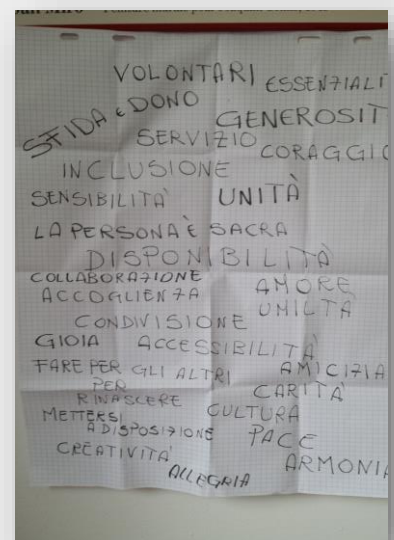 VOLONTARI
ESSENZIALI
SFIDA E DONO
GENEROSIT
SERVIZIO
CORAGGIO
INCLUSIONE
SENSIBILITA'
UNITÀ
LA PERSONA È SACRA
DISPONIBILITÀ
COLLABORAZIONE
AMORE
ACCOGLIENZA
UMILTÀ
CONDIVISIONE
GIOIA
ACCESSIBILITA'
FARE PER GLI ALTRI
AMICIZIA
PER
RINASCERE
CARITA'
METTERSI
A DISPOSIZIONE
CULTURA
PACE
CREATIVITA'
ARMONIA
ALLEGRIA